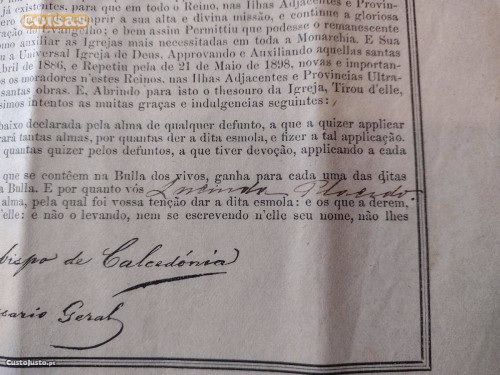 coisas
já existentes, para em todo o Reino, nas Ilhas Adjacentes e Provin-
prir a sua alta e divina missão, e continue a gloriosa
Evangelho; e bem assim Permittiu que podesse o remanescente
omo auxiliar as Igrejas mais necessitadas em toda a Monarchia. E Sua
u a Universal Igreja de Deus. Approvando e Auxiliando aquellas santas
bril de 1886, e Repetin pela de 21 de Maio de 1898, novas e importan-
os moradores n'estes Reinos, nas Ilhas Adjacentes e Provincias Ultra-
santas obras. E, Abrindo para isto o thesouro da Igreja, Tirou d'elle,
simos intentos as muitas graças e indulgencias seguintes:
baixo declarada pela alma de qualquer defunto, a que a quizer applicar
rará tantas almas, por quantas der a dita esmola, e fizer a tal applicação.
quantas quizer pelos defuntos, a que tiver devoção, applicando a cada
que se contêem na Bulla dos vivos, ganha para cada uma das ditas
a Bulla. E por quanto vós Lucinda Placido
alma, pela qual foi vossa tenção dar a dita esmola: e os que a derem,
'elle: e não o levando, nem se escrevendo n'elle seu nome, não lhes
bispo de Calcedónia
ssario Geral
CustoJusto.pt